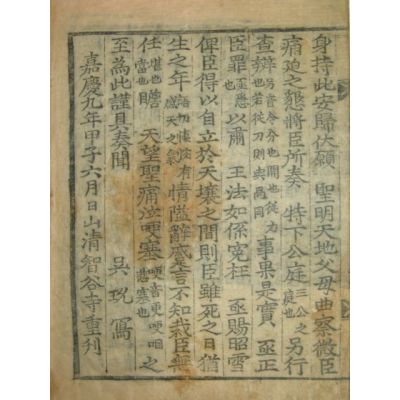 身持此安歸伏願 聖明天地父母曲察微臣
痛迫之懇將臣所奏 特下公庭 三公之庭也 另行
查辯 事果是實 亟正
臣罪 以肅 王法如係寃枉 亟賜昭雪
俾臣得以自立於天壤之間則臣雖死之日猶
生之年 情隘辭蹙言不知裁臣無
任 堪也當也 瞻 天望聖痛泣哽塞 哽音更哽咽悲塞也 之
至爲此謹具奏聞
吴 寫
嘉慶九年甲子六月日山清智谷寺重刊